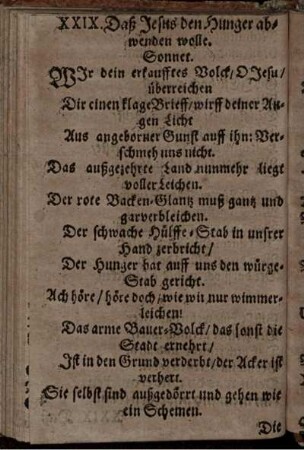 XXIX. Daß Jesus den Hunger ab-
wenden wolle.
Sonnet.
WJr dein erkaufftes Volck/ O Jesu/
überreichen
Dir einen klage Brieff/ wirff deiner Au-
gen Licht
Aus angeborner Gunst auff ihn: Ver-
schmeh uns nicht.
Das außgezehrte Land nunmehr liegt
voller Leichen.
Der rote Backen-Glantz muß gantz und
gar verbleichen.
Der schwache Hülffe-Stab in unsrer
Hand zerbricht/
Der Hunger hat auff uns den würge-
Stab gericht.
Ach höre/ höre doch/ wie wir nur wimmer-
leichen!
Das arme Bauer-Volck/ das sonst die
Stadt ernehrt/
Jst in den Grund verderbt/ der Acker ist
verhert.
Sie selbst sind außgedörrt und gehen wie
ein Schemen.
Die